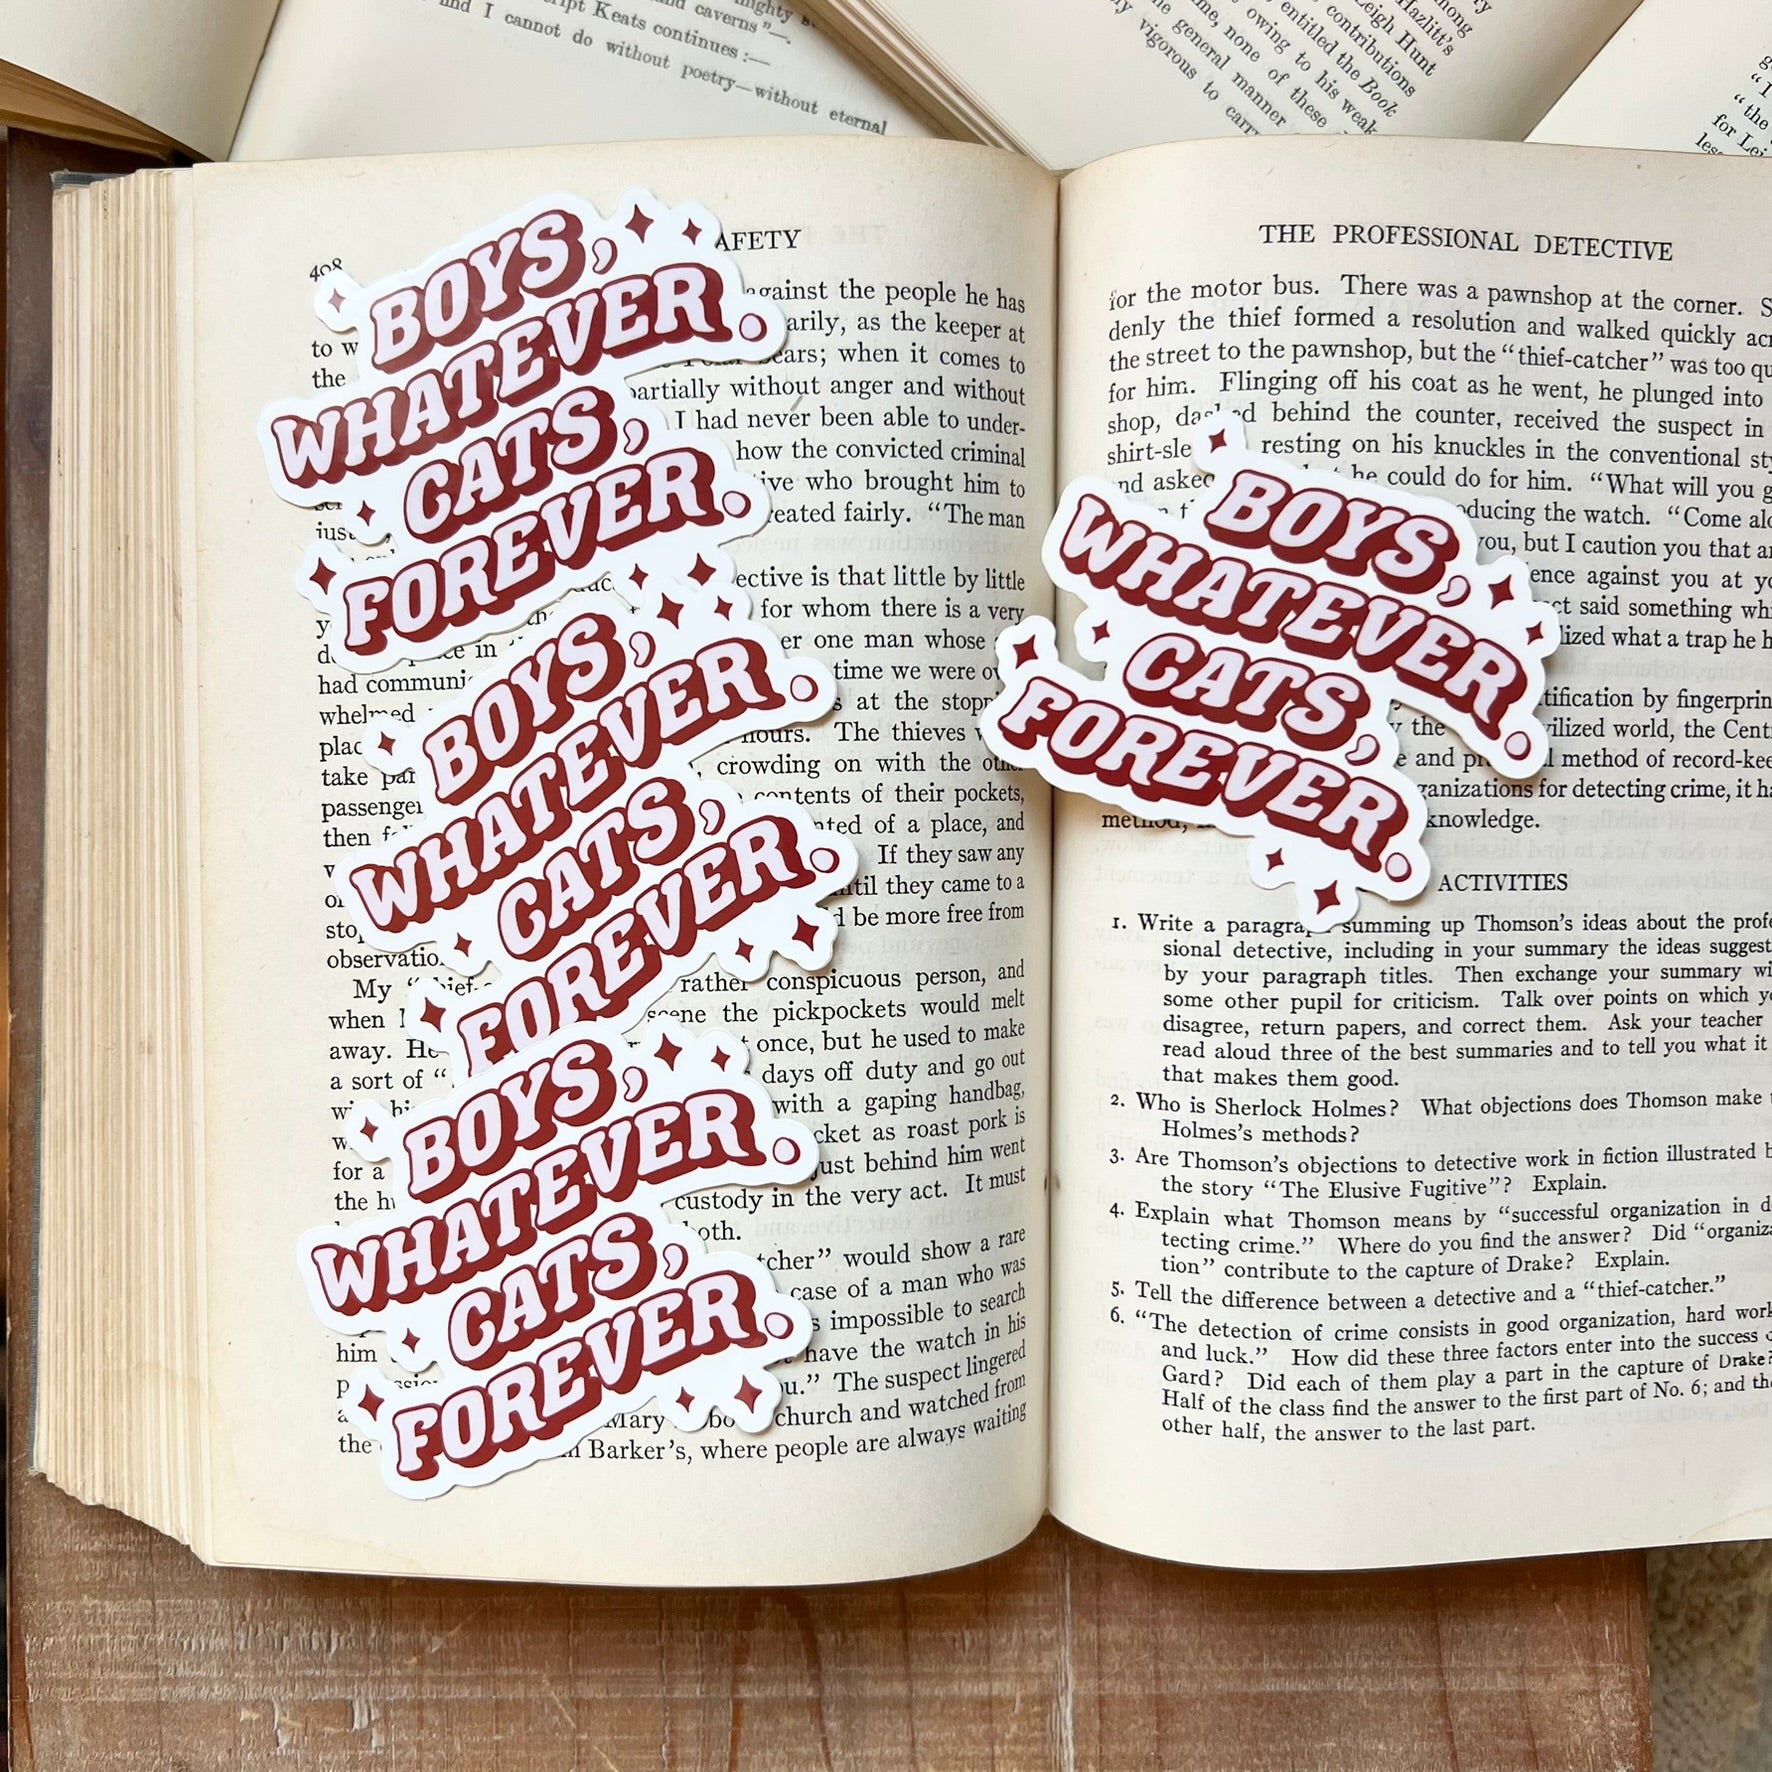 mighty s
and caverns"—.
ript Keats continues :—
nd I cannot do without poetry—without eternal
among
Hazlitt's
Leigh Hunt
contributions
entitled the Book
owing to his weak
me, none of these
he general manner
vigorous to carry
"I
"the
for Lei
less
408
AFETY
against the people he has
to w
arily, as the keeper at
the
ears; when it comes to
partially without anger and without
I had never been able to under-
how the convicted criminal
ive who brought him to
just
reated fairly. "The man
ective is that little by little
for whom there is a very
er one man whose
in
time we were ov
had communi
at the stopp
whelmed
hours. The thieves
plac
, crowding on with the other
take par
contents of their pockets,
passenger
nted of a place, and
then
If they saw any
ntil they came to a
d be more free from
observatio
My "
rather conspicuous person, and
when
scene the pickpockets would melt
away. He
once, but he used to make
a sort of "
days off duty and go out
with a gaping handbag,
cket as roast pork is
for a
just behind him went
the
custody in the very act. It must
both.
tcher" would show a rare
case of a man who was
s impossible to search
him
have the watch in his
u." The suspect lingered
Mary
church and watched from
the
Barker's, where people are always waiting
BOYS,
WHATEVER.
CATS,
FOREVER.
BOYS,
WHATEVER.
CATS,
FOREVER.
BOYS,
WHATEVER.
CATS,
FOREVER.
THE PROFESSIONAL DETECTIVE
for the motor bus. There was a pawnshop at the corner. S
denly the thief formed a resolution and walked quickly acr
the street to the pawnshop, but the "thief-catcher" was too qu
for him. Flinging off his coat as he went, he plunged into
shop, dashed behind the counter, received the suspect in
shirt-sle resting on his knuckles in the conventional sty
and asked he could do for him. "What will you g
oducing the watch. "Come alo
you, but I caution you that an
ence against you at yo
ct said something whi
lized what a trap he h
tification by fingerprin
the vilized world, the Cent
and method of record-kee
ganizations for detecting crime, it ha
method, knowledge.
BOYS,
WHATEVER.
CATS,
FOREVER.
ACTIVITIES
1. Write a paragraph summing up Thomson's ideas about the profe
sional detective, including in your summary the ideas suggest
by your paragraph titles. Then exchange your summary wi
some other pupil for criticism. Talk over points on which yo
disagree, return papers, and correct them. Ask your teacher
read aloud three of the best summaries and to tell you what it
that makes them good.
2. Who is Sherlock Holmes? What objections does Thomson make
Holmes's methods?
3. Are Thomson's objections to detective work in fiction illustrated b
the story "The Elusive Fugitive"? Explain.
4. Explain what Thomson means by "successful organization in d
tecting crime." Where do you find the answer? Did "organiza
tion" contribute to the capture of Drake? Explain.
5. Tell the difference between a detective and a "thief-catcher."
6. "The detection of crime consists in good organization, hard work
and luck." How did these three factors enter into the success o
Gard? Did each of them play a part in the capture of Drake?
Half of the class find the answer to the first part of No. 6; and the
other half, the answer to the last part.